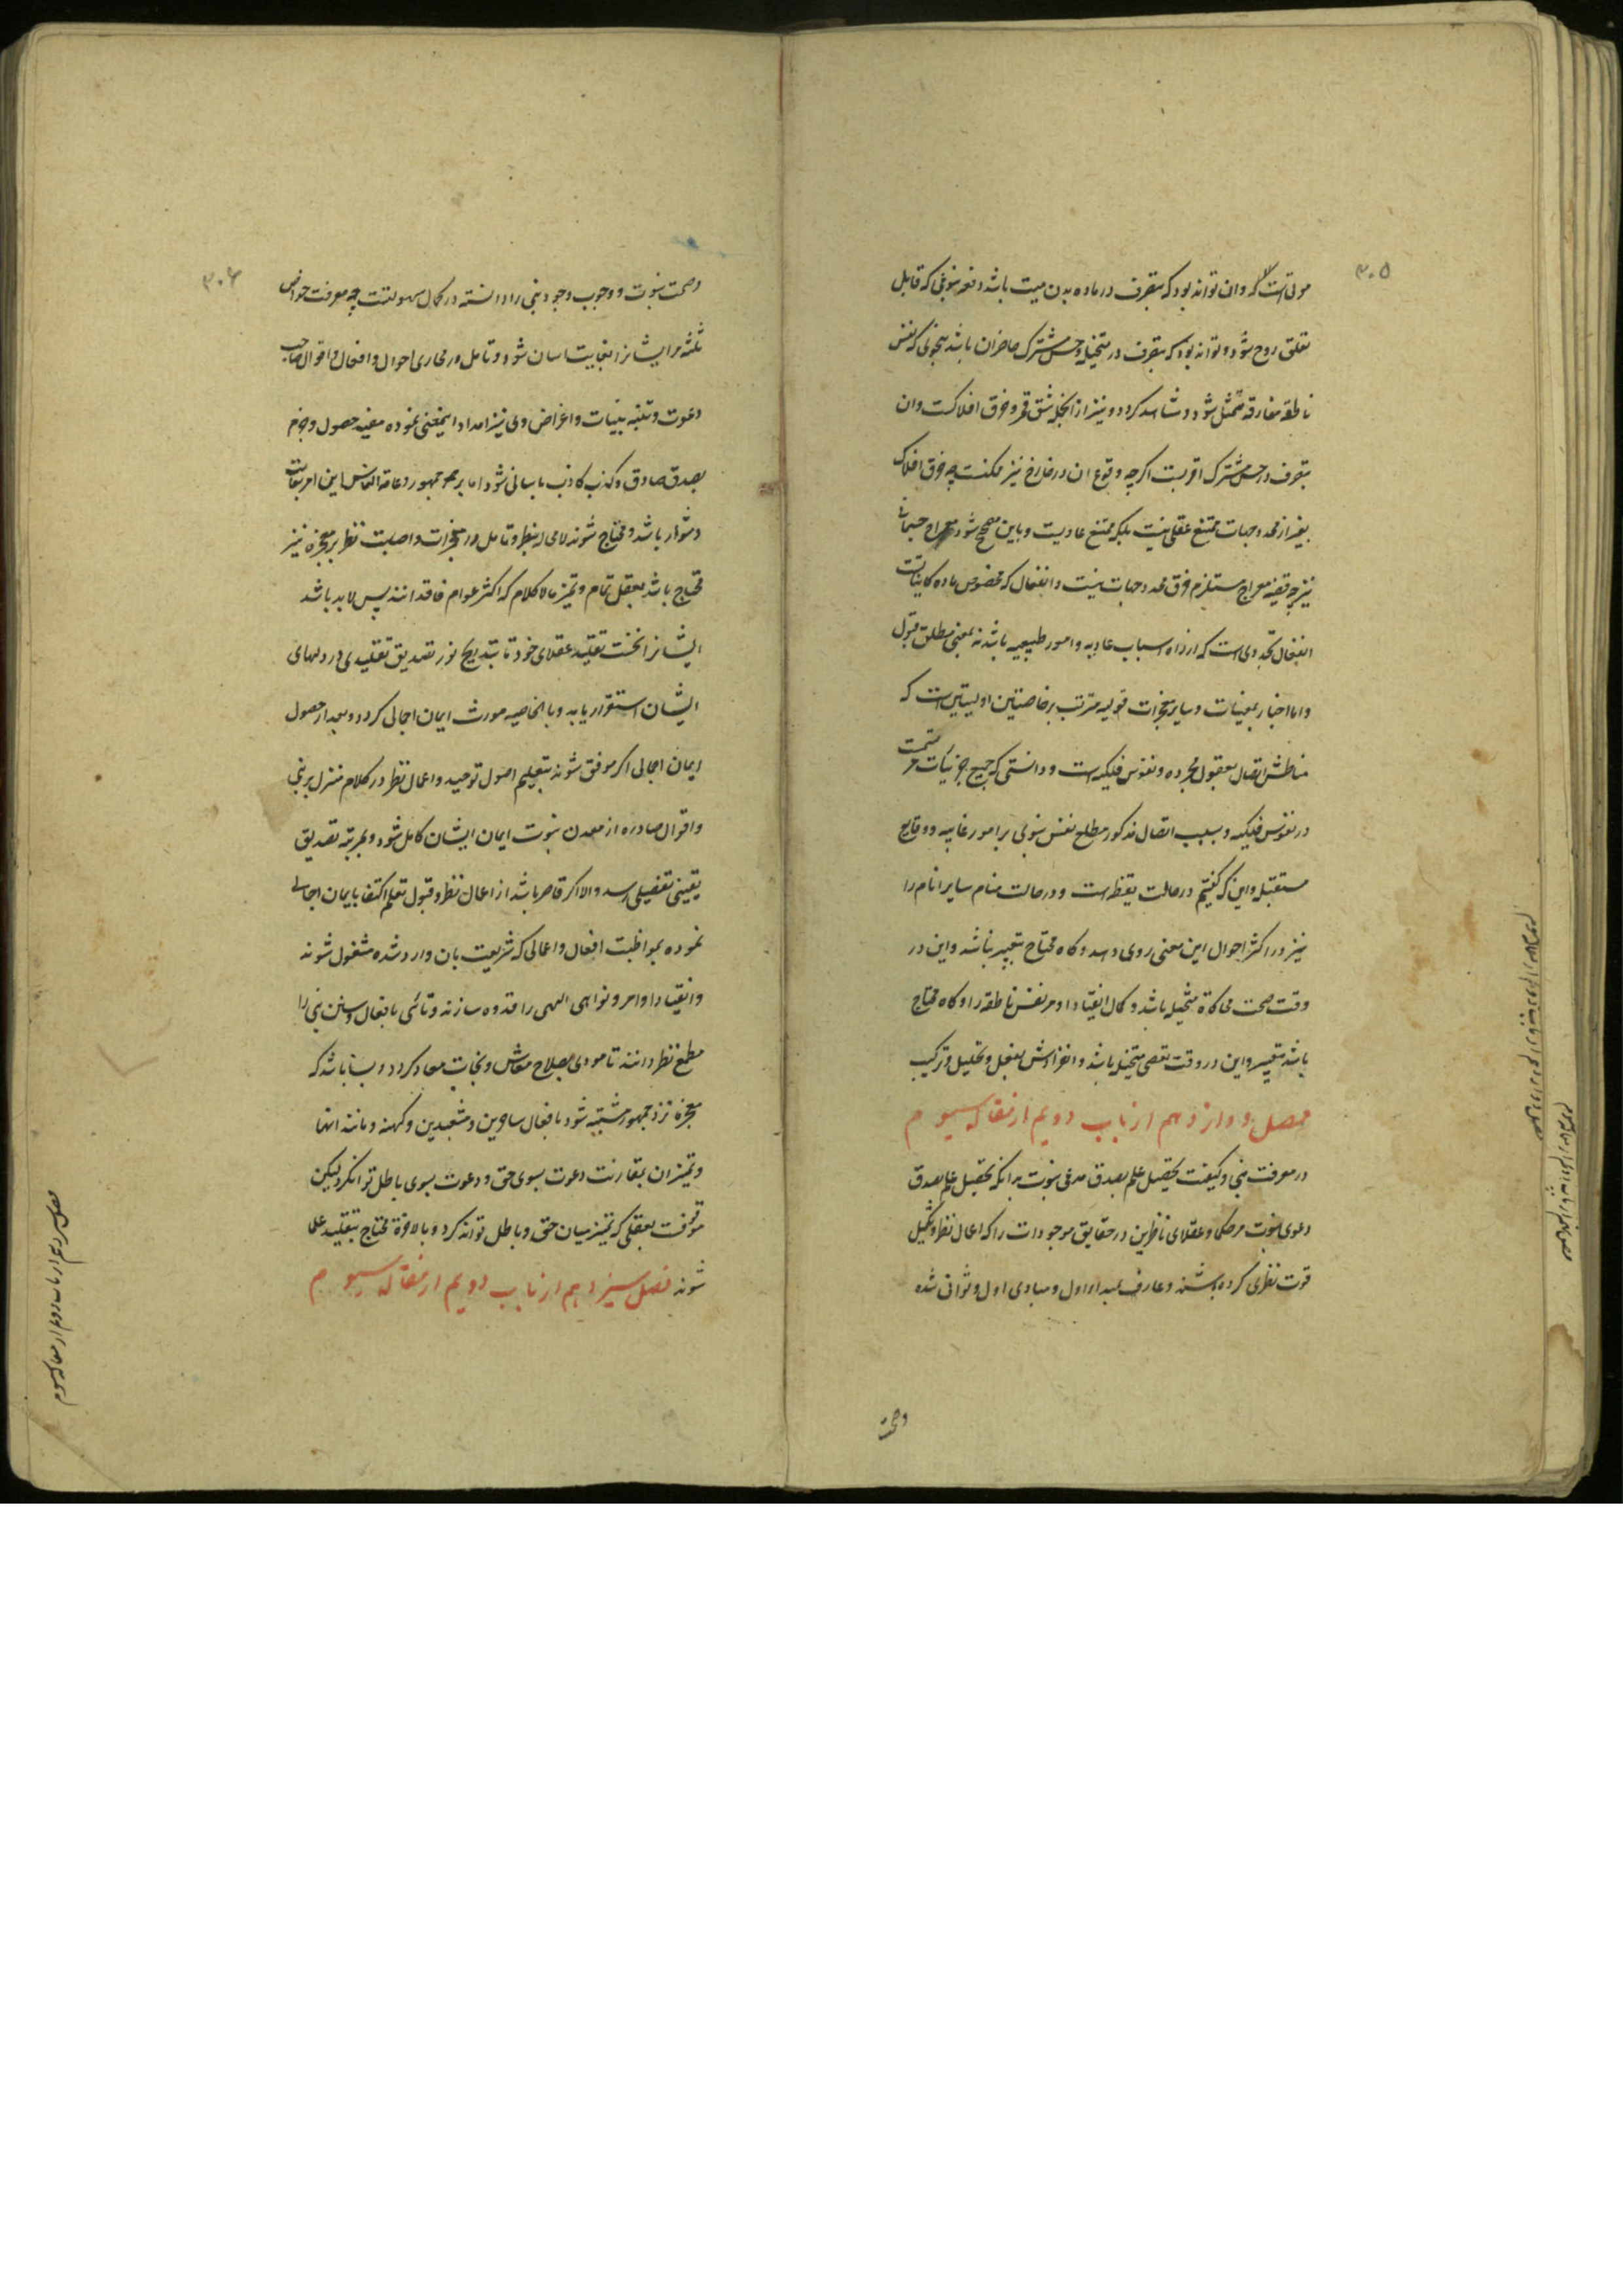 ۳۰۵
موتی است که وان تواند بود که بتصرف در ماده بدن میت باشد دفعه بنوعی که قابل
تعلق روح شود و تواند بود که بتصرف در متخیله و حس مشترک حاضران باشد بنحوی که نفس
ناطقه مفارقه متمثل شود و مشاهد کردد و نیز از انجمله شق قمر و خرق افلاکست وان
بتصرف در حس مشترک اقربست اکرچه وقوع ان در خارج نیز ممکنست چه خرق افلاک
بغیر از محدد جهات ممتنع عقلی نیست بلکه ممتنع عادیست و باین مصحح شود معراج جسمانی
نیز چه قضیه معراج مستلزم خرق محدد جهات نیست و انفعال که مخصوص ماده کاینات است
انفعال تجددی است که از راه اسباب عادیه و امور طبیعیه باشد نه بمعنی مطلق قبول
واما اخبار بمغیبات و سایر معجزات قولیه مترتب بر خاصتین اولیین است که
مناطش اتصال بعقول مجرده و نفوس فلکیه است و دانستی که جمیع جزئیات مرتسمست
در نفوس فلکیه و بسبب اتصال مذکور مطلع نفس نبوی بر امور غایبه و وقایع
مستقبله و این که کفتیم در حالت یقظه است و در حالت منام سایر انام را
نیز در اکثر احوال این معنی روی دهد و کاه محتاج بتعبیر نباشد و این در
وقت صحت محاکاة متخیله باشد و کمال انقیاد او مر نفس ناطقه را و کاه محتاج
باشد بتعبیر و این در وقت تعصی متخیله باشد و انفرادش بفعل و تحلیل و ترکیب
فصل دوازدهم از باب دویم از مقاله سیوم
در معرفت نبی و کیفیت تحصیل علم بصدق مدعی نبوت بدانکه تحصیل علم بصدق
دعوی نبوت مر حکما و عقلای ناظرین در حقایق موجودات را که اعمال نظر و تکمیل
قوت نظری کرده باشند و عارف بمبداء اول و مبادی اول و ثوانی شده
وصحت
۳۰۶
وصحت نبوت و وجوب وجود نبی را دانسته در کمال سهولتست چه معرفت خواص
ثلثه مر ایشانرا بغایت اسان شود و تامل در مجاری احوال و افعال و اقوال صاحب
دعوت و تنبه بنیات و اغراض وی نیز امداد اینمعنی نموده مفید حصول وجزم
بصدق صادق و کذب کاذب باسانی شود اما بر جمهور و عامة الناس این امر بغایت
دشوار باشد و محتاج شوند لامحاله بنظر و تامل در معجزات و اصابت نظر بر معجزه نیز
محتاج باشد بعقل تمام و تمیز مالا کلام که اکثر عوام فاقد انند پس لابد باشد
ایشانرا نخست تقلید عقلای خود تا بتدریج نور تصدیق تقلیدی در دلهای
ایشان استقرار یابد و بالخاصیه مورث ایمان اجمالی کردد و بعد از حصول
ایمان اجمالی اکر موفق شوند بتعلیم اصول توحید و اعمال نظر در کلام منزل بر نبی
و اقوال صادره از معدن نبوت ایمان ایشان کامل شود و بمرتبه تصدیق
یقینی تفصیلی رسد و الا اکر قاصر باشد از اعمال نظر و قبول تعلم اکتفا بایمان اجمالی
نموده بمواظبت افعال و اعمالی که شریعت بان وارد شده مشغول شوند
و انقیاد اوامر و نواهی الهی را قدوه سازند و تاسی بافعال و سنن نبی را
مطمح نظر دانند تا مودی بصلاح معاش و نجات معاد کردد و بسا باشد که
معجزه نزد جمهور مشتبه شود بافعال ساحرین و مشعبدین و کهنه و مانند انها
و تمیز ان بمقارنت دعوت بسوی حق و دعوت بسوی باطل توانکرد لیکن
موقوفست بعقلی که تمیز میان حق و باطل تواند کرد و بالاخرة محتاج بتقلید علما
شوند فصل سیزدهم از باب دویم از مقاله سیوم
فصل سیزدهم از باب دویم از مقاله سیوم